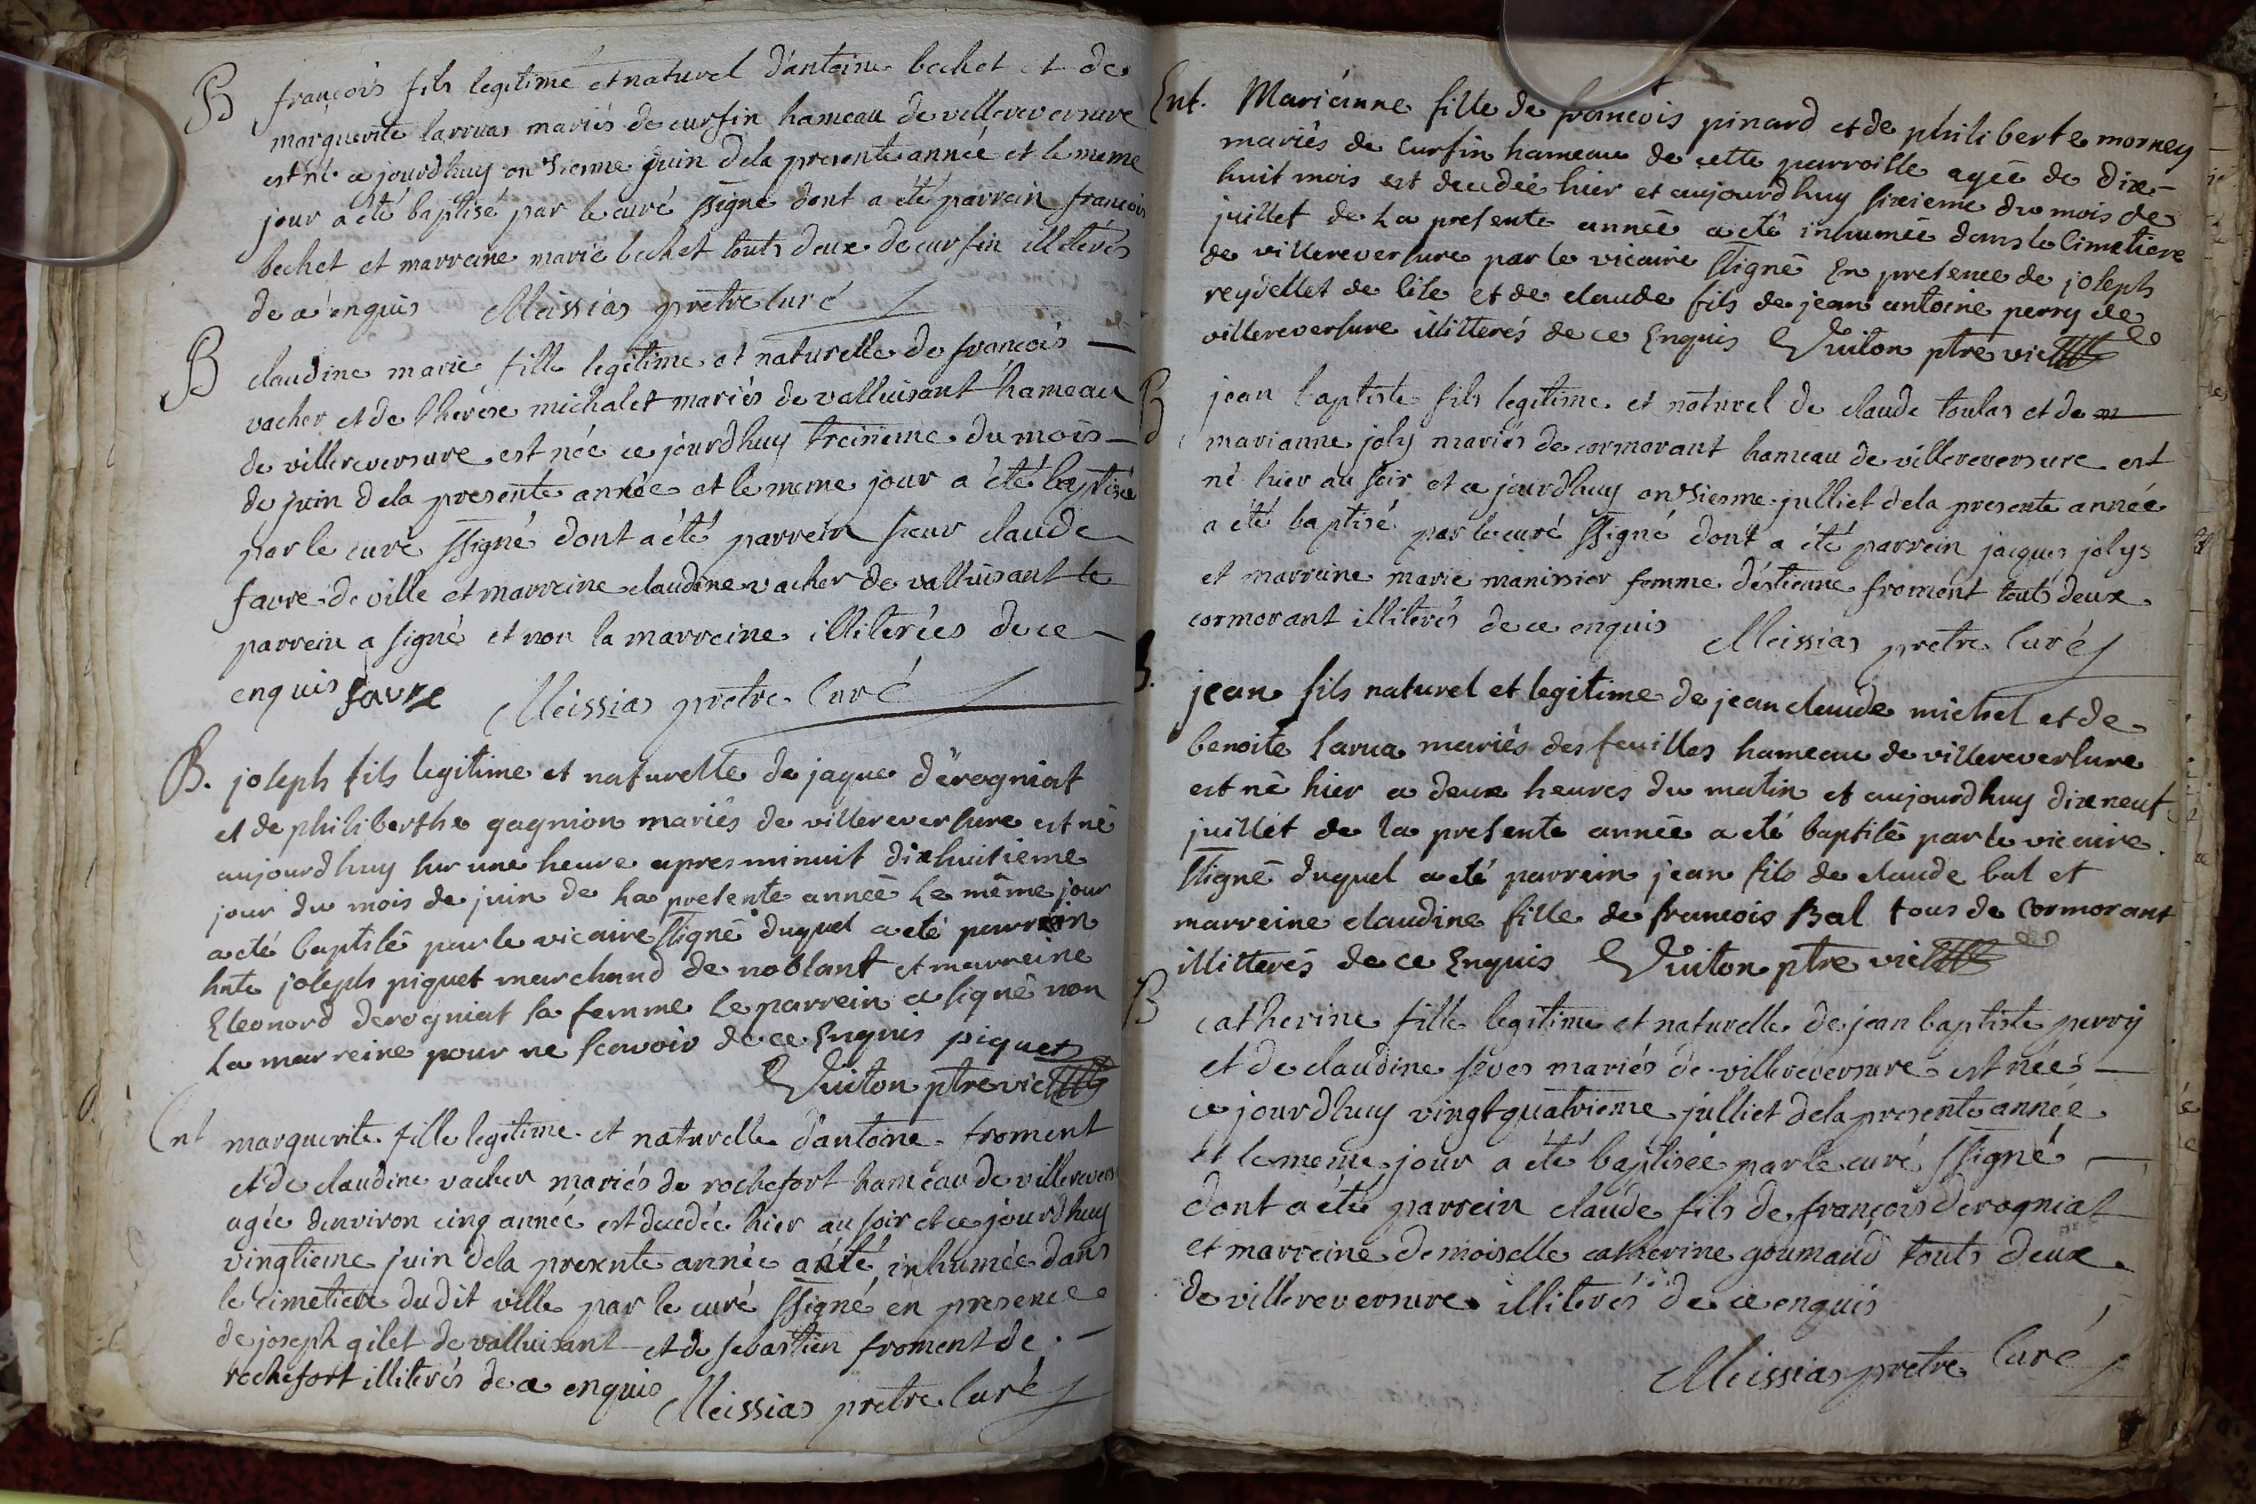 B françois fils legitime et naturel d'antoine bechet et de
marguerite larruas mariés de curfin hameau de villereversure
est né ce jourdhuy onsieme juin dela presente année et le meme
jour a été baptisé par le curé ssigné dont a été parrein françois
bechet et marreine marie bechet touts deux de curfin illiterés
de ce enquis Meissias pretre curé
B claudine marie fille legitime et naturelle de françois
vacher et de therese michalet mariés de valluisant hameau
de villereversure est née ce jourdhuy treisieme du mois
de juin dela presente année et le meme jour a été baptisée
par le curé ssigné dont a été parrein sieur claude
favre de ville et marreine claudine vacher de valluisant le
parrein a signé et non la marreine illiterées de ce
enquis favre Meissias pretre curé
B. joseph fils legitime et naturelle de jaque dérogniat
et de philiberthe gagnion mariés de villereversure est né
aujourdhuy sur une heure apres minuit dixhuitieme
jour du mois de juin de la presente année le même jour
a eté baptisé par le vicaire ssigné duquel a eté parrein
hnte joseph piquet marchand de noblant et marreine
Eleonord derogniat sa femme le parrein a signé non
la marreine pour ne scavoir de ce Enquis piquet
Vuiton ptre vic
Ent marguerite fille legitime et naturelle d'antoine froment
et de claudine vacher mariés de rochefort hameau de villerevers
agée denviron cinq année est decedée hier au soir et ce jourdhuy
vingtieme juin dela presente année a été inhumée dans
le cimetiere dudit ville par le curé ssigné en presence
de joseph gilet de valluisant et de sebastien froment de
rochefort illiterés de ce enquis Meissias pretre curé
Ent. Marianne fille de francois pinard et de philiberte morney
mariés de curfin hameau de cette parroisse agée de dix-
huit mois est decedée hier et aujourdhuy sixieme du mois de
juillet de La presente année a eté inhumée dans le Cimetiere
de villereversure par le vicaire ssigné En presence de joseph
reydellet de lile et de claude fils de jean antoine perry de
villereversure illitterés de ce Enquis Vuiton ptre vic
B jean baptiste fils legitime et naturel de claude toulas et de
marianne joly mariés de cormorant hameau de villereversure est
né hier au soir et ce jourdhuy onsiesme julliet dela presente année
a été baptisé par le curé ssigné dont a été parrein jacques jolys
et marreine marie manissier femme d'éstienne froment touts deux
cormorant illiterés de ce enquis Meissias pretre curé
B. jean fils naturel et legitime de jean claude michel et de
benoite larua mariés des feuilles hameau de villereversure
est né hier a deux heures du matin et aujourdhuy dixneuf
juillet de la presente année a eté baptisé par le vicaire
ssigné duquel a eté parrein jean fils de claude bal et
marreine claudine fille de francois Bal tous de Cormorant
illitterés de ce Enquis Vuiton ptre vic
B catherine fille legitime et naturelle de jean baptiste perry
et de claudine mariés de villereversure est née
ce jourdhuy vingtquatrieme julliet dela presente année
et le meme jour a été baptisée par le curé ssigné
dont a été parrein claude fils de françois derogniat
et marreine demoiselle catherine goumaud touts deux
de villereversure illiterés de ce enquis
Meissias pretre curé